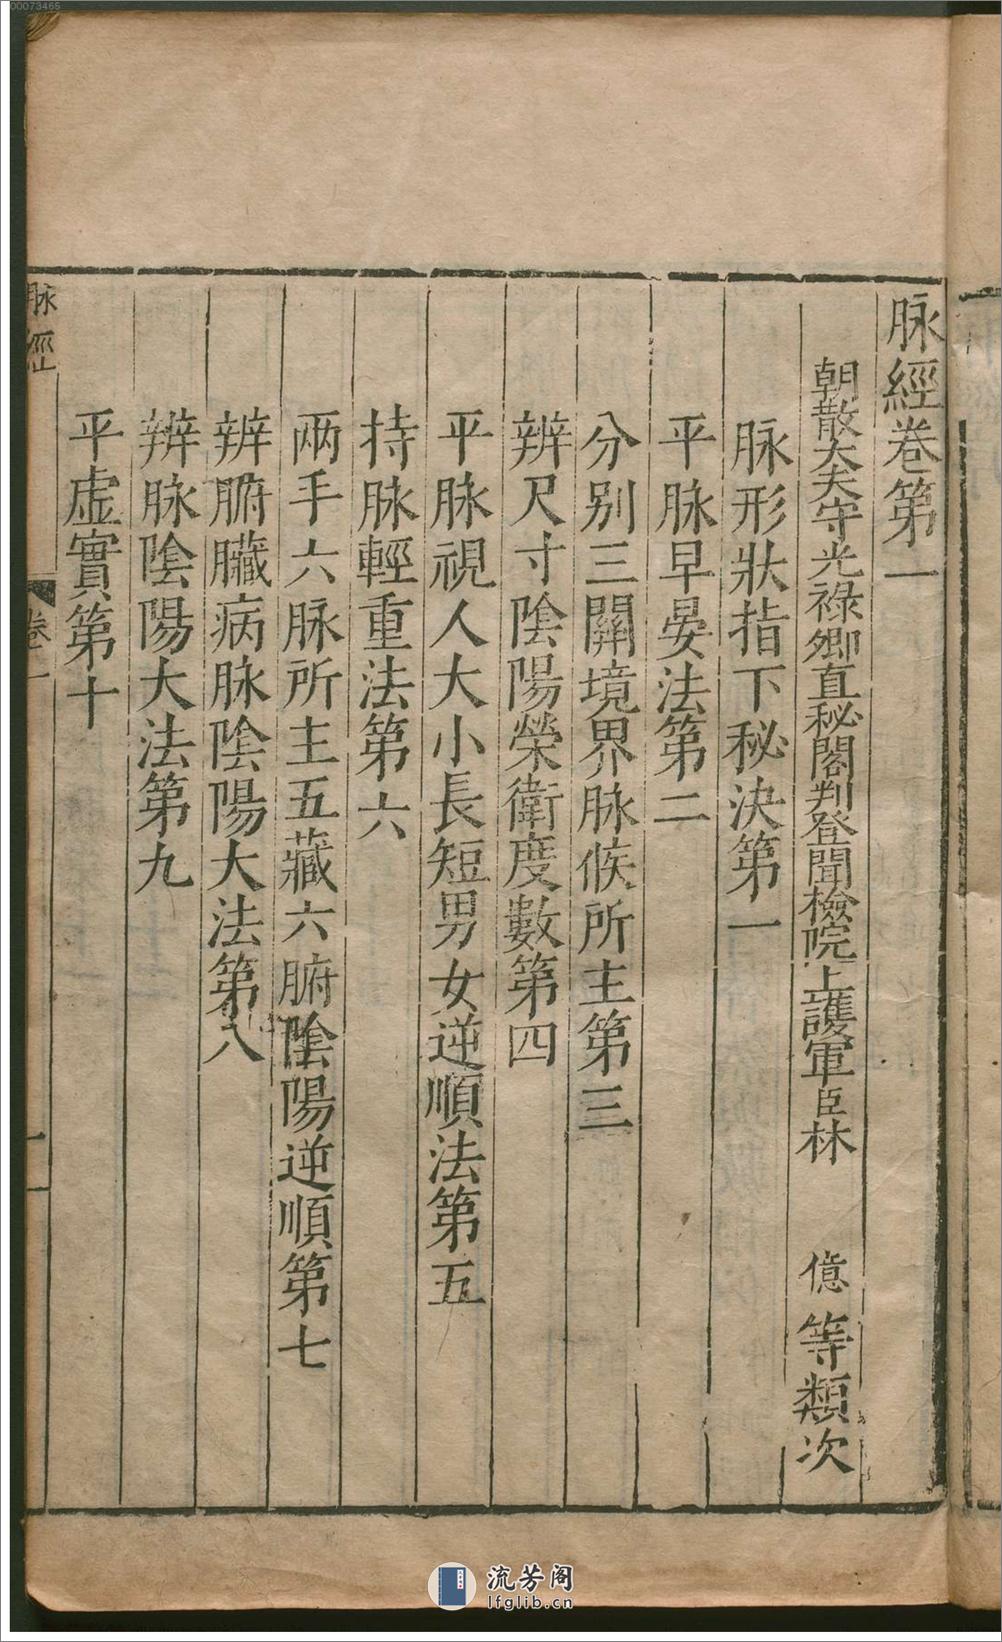 00073465
脉經卷第一
朝散大夫守光祿卿直秘閣判登聞檢院上護軍臣林億等類次
脉形狀指下秘決第一
平脉早晏法第二
分别三關境界脉候所主第三
辨尺寸陰陽榮衛度數第四
平脉視人大小長短男女逆順法第五
持脉輕重法第六
兩手六脉所主五藏六腑陰陽逆順第七
辨腑臟病脉陰陽大法第八
辨脉陰陽大法第九
平虛實第十
脉經
卷一
一
流芳阁
lfglib.cn